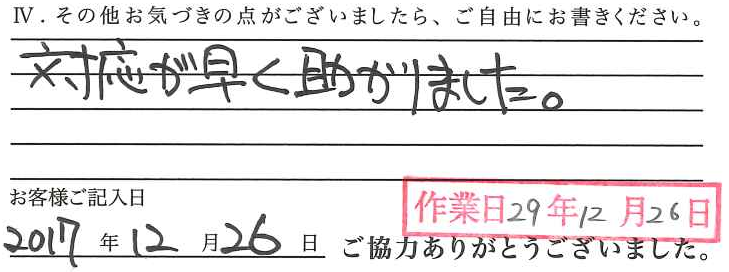 Ⅳ．その他お気づきの点がございましたら、ご自由にお書きください。
対応が早く助かりました。
お客様ご記入日
作業日29年12月26日
2017年12月26日 ご協力ありがとうございました。